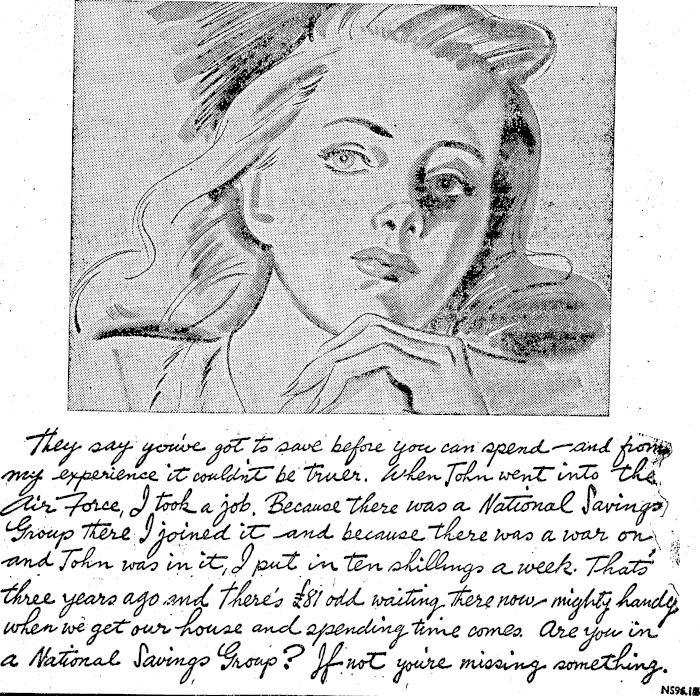 They say you've got to save before you can spend — and from
my experience it couldn't be truer. When John went into the
Air Force, I took a job. Because there was a National Savings
Group there I joined it — and because there was a war on
and John was in it, I put in ten shillings a week. That's
three years ago and there's £81 odd waiting there now — mighty handy
when we get our house and spending time comes. Are you in
a National Savings Group? If not you're missing something.